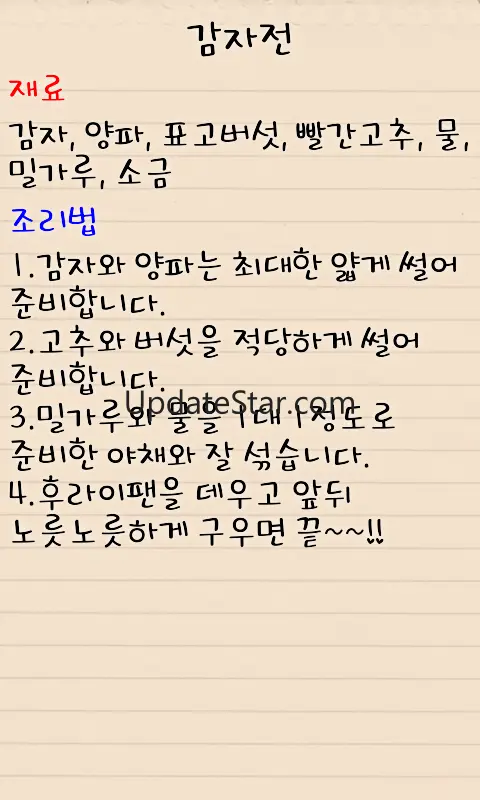 감자전
재료
감자, 양파, 표고버섯, 빨간고추, 물,
밀가루, 소금
조리법
1.감자와 양파는 최대한 얇게 썰어
준비합니다.
2.고추와 버섯을 적당하게 썰어
준비합니다.
UpdateStar.com
3.밀가루와 물을 1대1정도로
준비한 야채와 잘 섞습니다.
4.후라이팬을 데우고 앞뒤
노릇노릇하게 구우면 끝~~!!